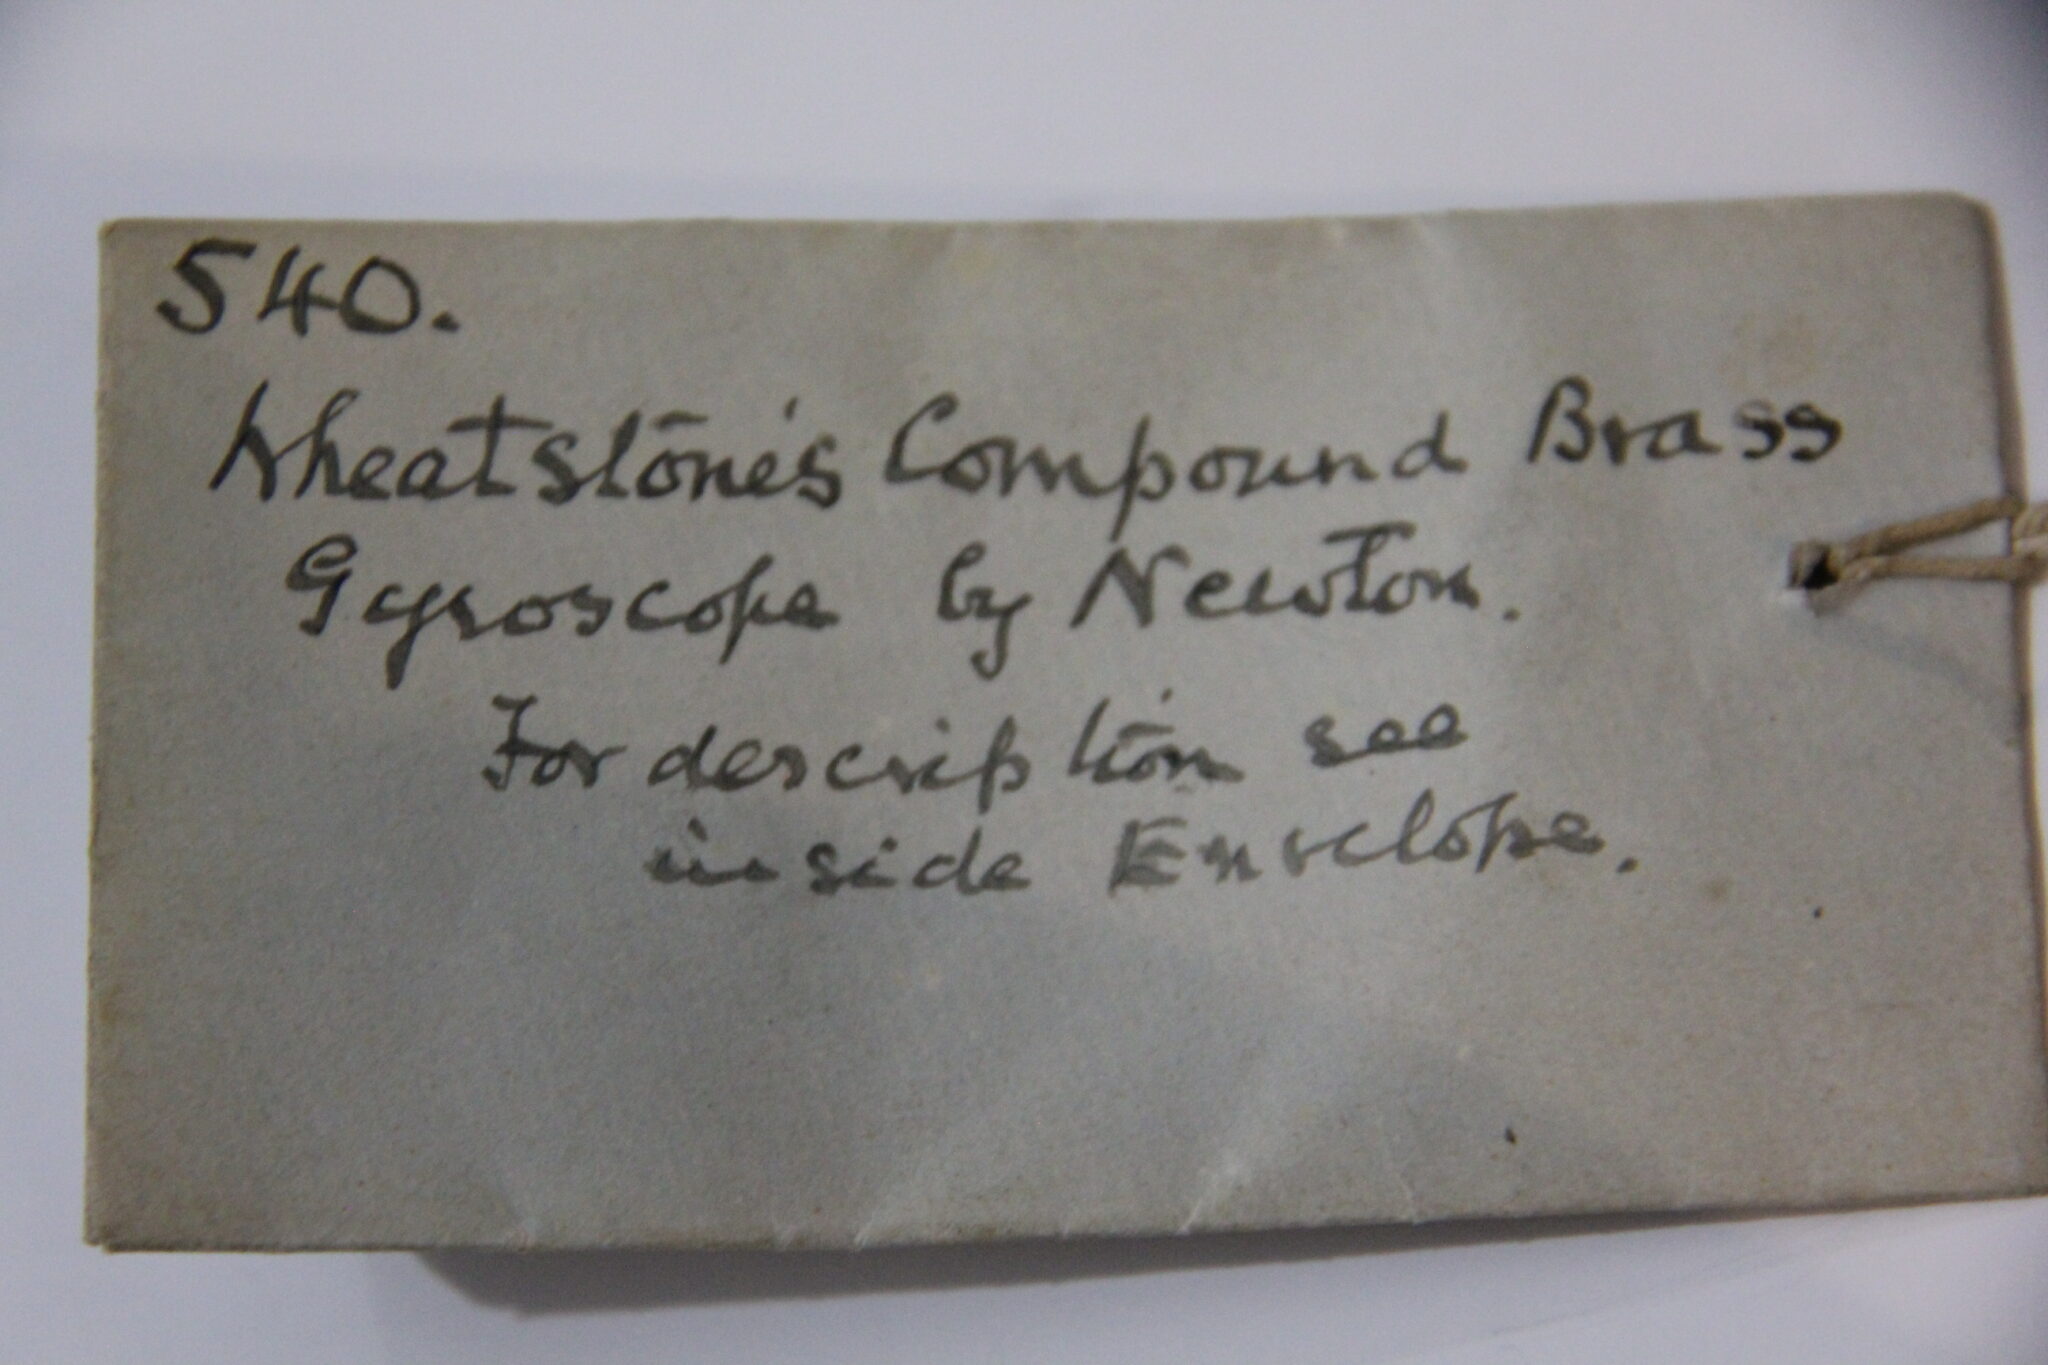 540.
Wheatstone's Compound Brass
Gyroscope by Newton.
For description see
inside Envelope.